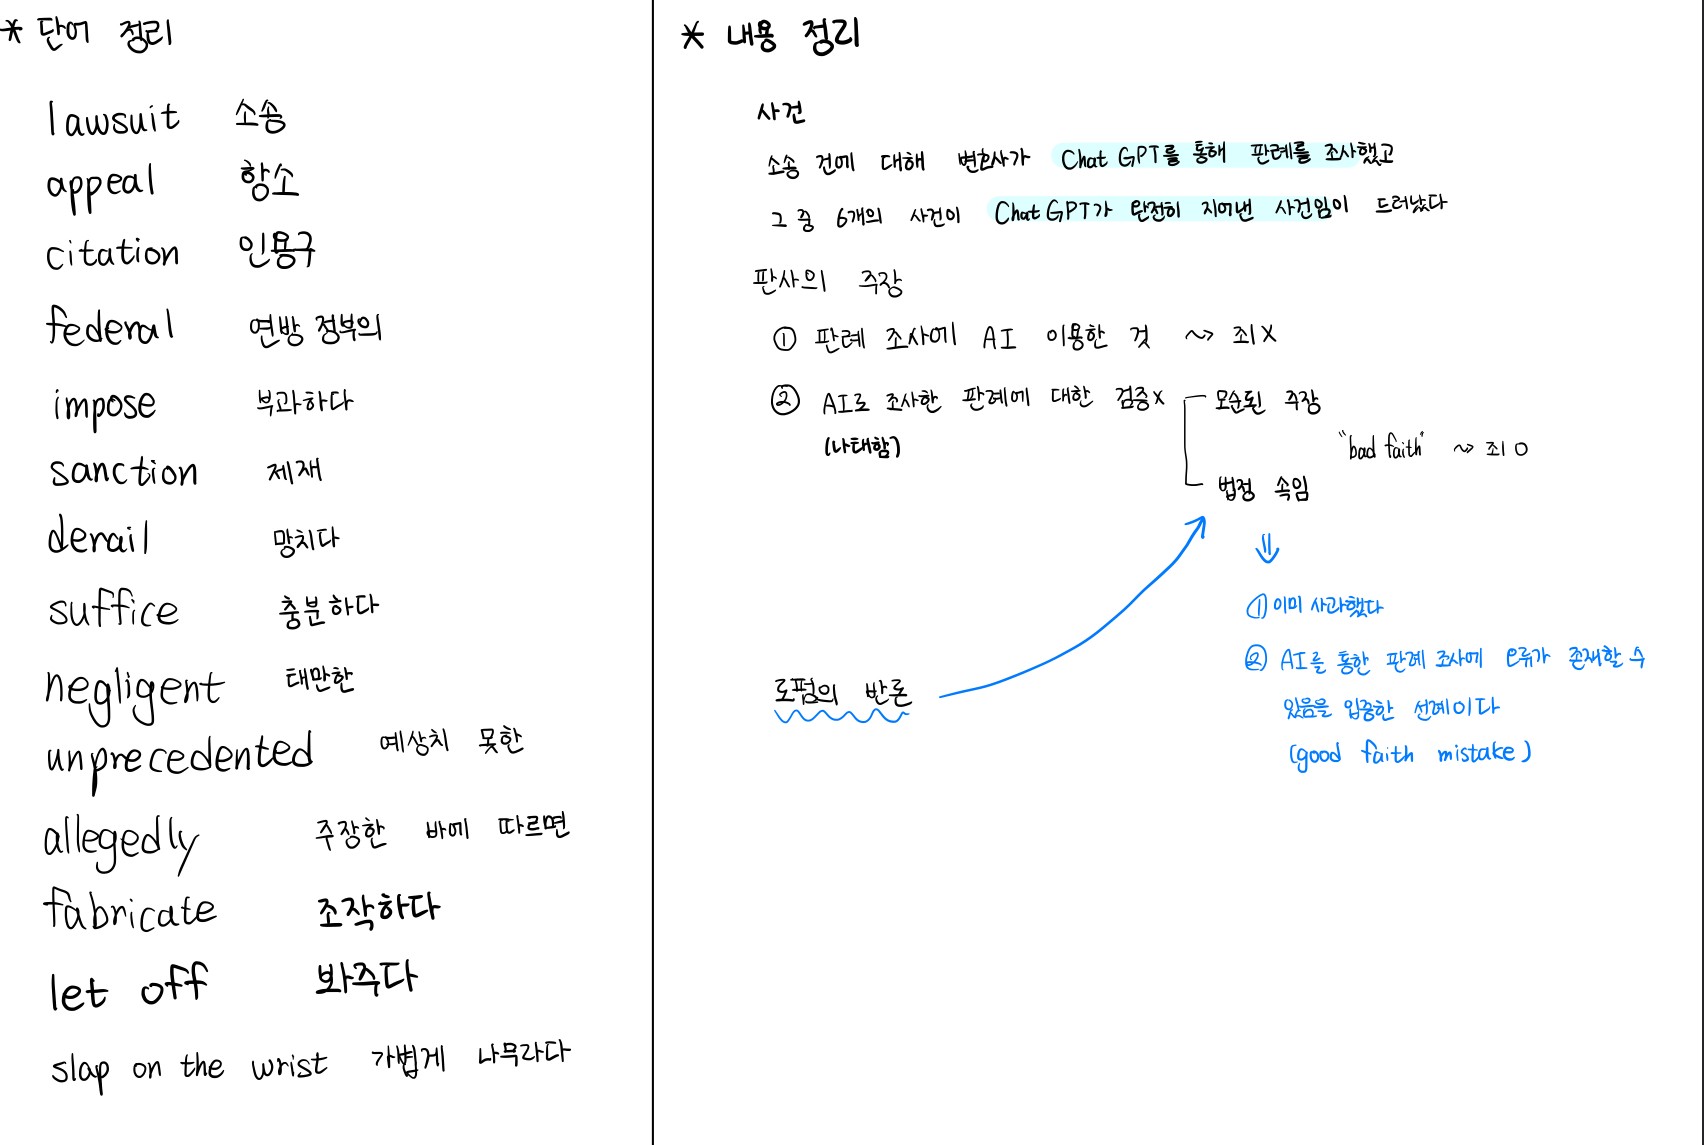 * 단어 정리
lawsuit 소송
appeal 항소
citation 인용구
federal 연방 정부의
impose 부과하다
sanction 제재
derail 망치다
suffice 충분하다
negligent 태만한
unprecedented 예상치 못한
allegedly 주장한 바에 따르면
fabricate 조작하다
let off 봐주다
slap on the wrist 가볍게 나무라다
* 내용 정리
사건
소송 건에 대해 변호사가 Chat GPT를 통해 판례를 조사했고
그 중 6개의 사건이 Chat GPT가 완전히 지어낸 사건임이 드러났다
판사의 주장
① 판례 조사에 AI 이용한 것 ~> 죄 X
② AI로 조사한 판례에 대한 검증X
(나태함)
모순된 주장
"bad faith" ~> 죄 O
법정 속임
⇓
① 이미 사과했다
로펌의 반론
② AI를 통한 판례 조사에 오류가 존재할 수
있음을 입증한 선례이다
(good faith mistake)